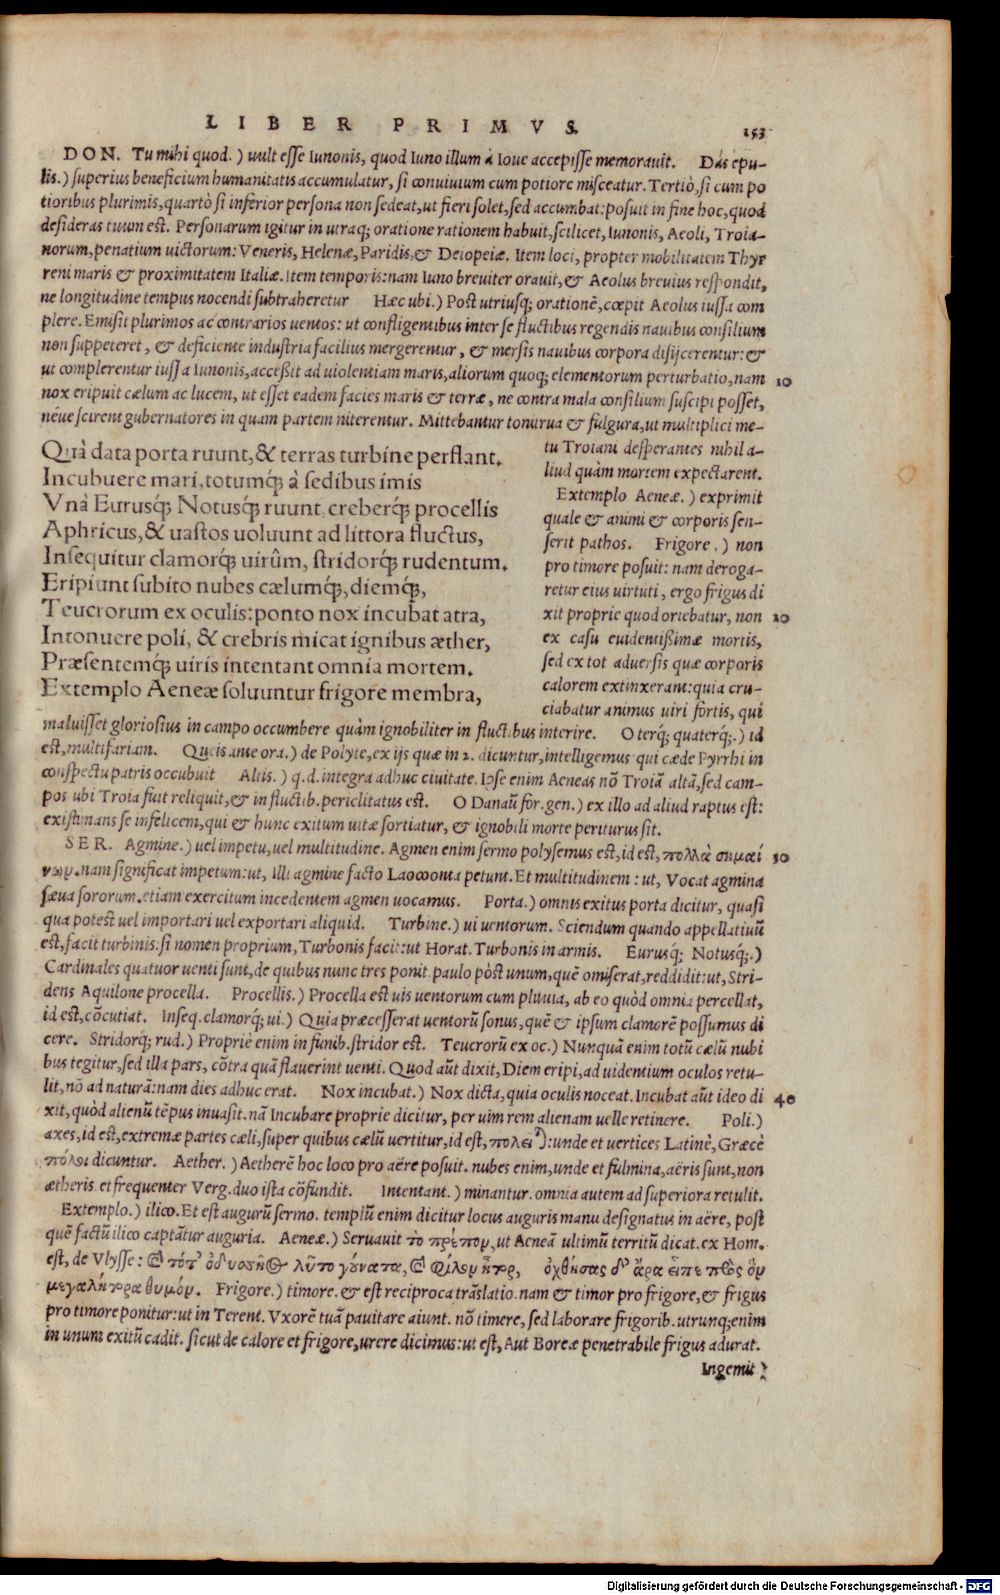 LIBER PRIMVS. 153
DON. Tu mihi quod.) uult esse Iunonis, quod Iuno illum à Ioue accepisse memorauit. Das epu-
lis.) superius beneficium humanitatis accumulatur, si conuiuium cum potiore misceatur. Tertiò, si cum po
tioribus plurimis, quartò si inferior persona non sedeat, ut fieri solet, sed accumbat: posuit in fine hoc, quod
desideras tuum est. Personarum igitur in utraq; oratione rationem habuit, scilicet, Iunonis, Aeoli, Troia-
norum, penatium uictorum: Veneris, Helenæ, Paridis, & Deiopeiæ. Item loci, propter mobilitatem Thyr
reni maris & proximitatem Italiæ. Item temporis: nam Iuno breuiter orauit, & Aeolus breuius respondit,
ne longitudine tempus nocendi subtraheretur Hæc ubi.) Post utriusq; orationē, cœpit Aeolus iussa com
plere. Emisit plurimos ac contrarios uentos: ut confligentibus inter se fluctibus regendis nauibus consilium
non suppeteret, & deficiente industria facilius mergerentur, & mersis nauibus corpora disijcerentur: &
ut complerentur iussa Iunonis, acceßit ad uiolentiam maris, aliorum quoq; elementorum perturbatio, nam 10
nox eripuit cælum ac lucem, ut esset eadem facies maris & terræ, ne contra mala consilium suscipi posset,
néue scirent gubernatores in quam partem niterentur. Mittebantur tonitrua & fulgura, ut multiplici me-
tu Troiani desperantes nihil a-
liud quàm mortem expectarent.
Extemplo Aeneæ.) exprimit
quale & animi & corporis sen-
serit pathos. Frigore.) non
pro timore posuit: nam deroga-
retur eius uirtuti, ergo frigus di
xit proprie quod oriebatur, non 20
ex casu euidentißimæ mortis,
sed ex tot aduersis quæ corporis
calorem extinxerant: quia cru-
ciabatur animus uiri fortis, qui
Quà data porta ruunt, & terras turbine perflant.
Incubuere mari, totumq́; à sedibus imis
Vnà Eurusq́; Notusq́; ruunt, creberq́; procellis
Aphricus, & uastos uoluunt ad littora fluctus,
Insequitur clamorq́; uirûm, stridorq́; rudentum.
Eripiunt subito nubes cælumq́;, diemq́;,
Teucrorum ex oculis: ponto nox incubat atra,
Intonuere poli, & crebris micat ignibus æther,
Præsentemq́; uiris intentant omnia mortem.
Extemplo Aeneæ soluuntur frigore membra,
maluisset gloriosius in campo occumbere quàm ignobiliter in fluctibus interire. O terq; quaterq;.) id
est, multifariam. Queis ante ora.) de Polyte, ex ijs quæ in 2. dicuntur, intelligemus qui cæde Pyrrhi in
conspectu patris occubuit Altis.) q.d. integra adhuc ciuitate. Ipse enim Aeneas nō Troiā altā, sed cam-
pos ubi Troia fuit reliquit, & in fluctib. periclitatus est. O Danaū for. gen.) ex illo ad aliud raptus est:
existimans se infelicem, qui & hunc exitum uitæ sortiatur, & ignobili morte periturus sit.
SER. Agmine.) uel impetu, uel multitudine. Agmen enim sermo polysemus est, id est, πολλὰ σημαί 30
νων. nam significat impetum: ut, Illi agmine facto Laocoonta petunt. Et multitudinem: ut, Vocat agmina
sæua sororum. etiam exercitum incedentem agmen uocamus. Porta.) omnis exitus porta dicitur, quasi
qua potest uel importari uel exportari aliquid. Turbine.) ui uentorum. Sciendum quando appellatiuū
est, facit turbinis: si nomen proprium, Turbonis facit: ut Horat. Turbonis in armis. Eurusq́; Notusq́;.)
Cardinales quatuor uenti sunt, de quibus nunc tres ponit. paulo pòst unum, quē omiserat, reddidit: ut, Stri-
dens Aquilone procella. Procellis.) Procella est uis uentorum cum pluuia, ab eo quòd omnia percellat,
id est, cōcutiat. Inseq. clamorq́; ui.) Quia præcesserat uentorū sonus, quē & ipsum clamorē possumus di
cere. Stridorq́; rud.) Propriè enim in funib. stridor est. Teucrorū ex oc.) Nunquā enim totū cælū nubi
bus tegitur, sed illa pars, cōtra quā flauerint uenti. Quod aūt dixit, Diem eripi, ad uidentium oculos retu-
lit, nō ad naturā: nam dies adhuc erat. Nox incubat.) Nox dicta, quia oculis noceat. Incubat aūt ideo di 40
xit, quòd alienū tēpus inuasit. nā Incubare proprie dicitur, per uim rem alienam uelle retinere. Poli.)
axes, id est, extremæ partes cæli, super quibus cælū uertitur, id est, πολεῖ: unde et uertices Latinè, Græcè
πόλοι dicuntur. Aether.) Aetherē hoc loco pro aëre posuit. nubes enim, unde et fulmina, aëris sunt, non
ætheris. et frequenter Verg. duo ista cōfundit. Intentant.) minantur. omnia autem ad superiora retulit.
Extemplo.) ilico. Et est augurū sermo. templū enim dicitur locus auguris manu designatus in aëre, post
quē factū ilico captātur auguria. Aeneæ.) Seruauit τὸ πρέπον, ut Aeneā ultimū territū dicat. ex Hom.
est, de Vlysse: Καὶ τότ' ὀδυσσῆος λῦτο γούνατα, καὶ φίλον ἦτορ, ὀχθήσας δ' ἄρα εἶπε πρὸς ὃν
μεγαλήτορα θυμόν. Frigore.) timore. & est reciproca trāslatio. nam & timor pro frigore, & frigus
pro timore ponitur: ut in Terent. Vxorē tuā pauitare aiunt. nō timere, sed laborare frigorib. utrunq; enim
in unum exitū cadit. sicut de calore et frigore, urere dicimus: ut est, Aut Boreæ penetrabile frigus adurat.
Ingemit.)
Digitalisierung gefördert durch die Deutsche Forschungsgemeinschaft - DFG